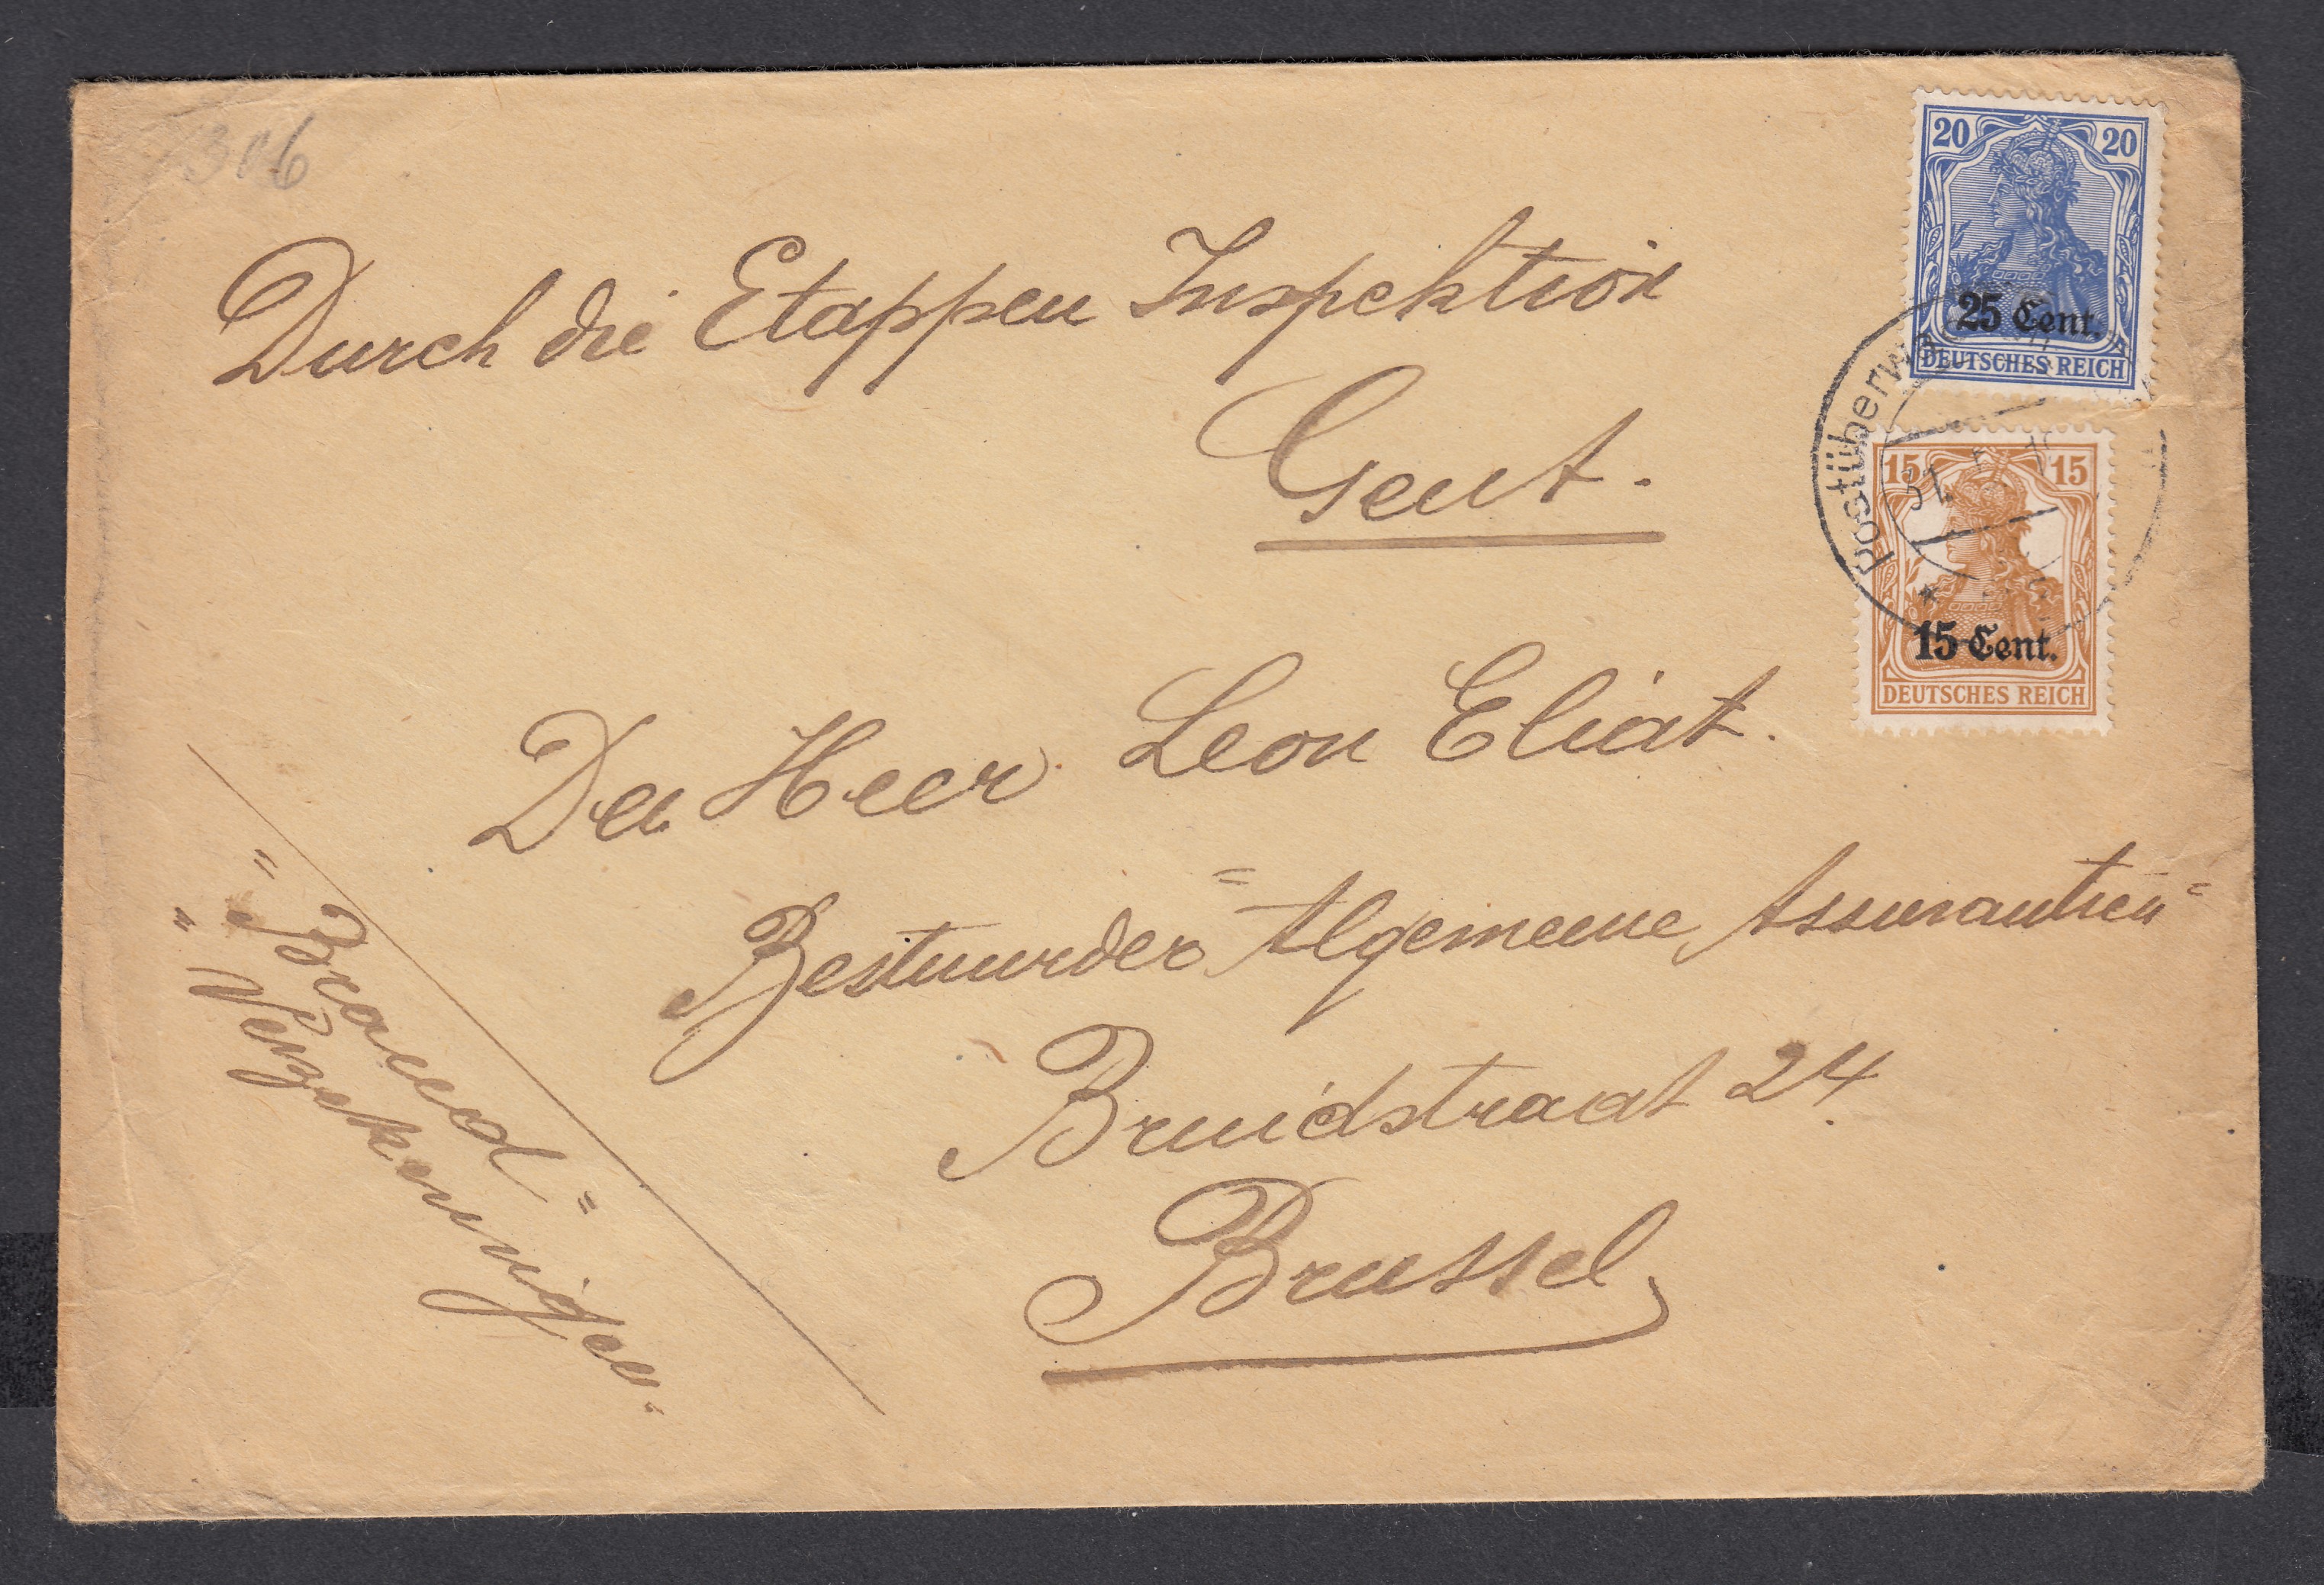 306
Durch die Etappen Inspektion
Gent.
20 20
25 Cent.
DEUTSCHES REICH
Postüberw
31.
15 15
15 Cent.
DEUTSCHES REICH
Den Heer Leon Eliat.
Bestuurder "Algemeene Assurantien"
Bruidstraat 24
Brussel
"Brand"
"Verzekeringen"